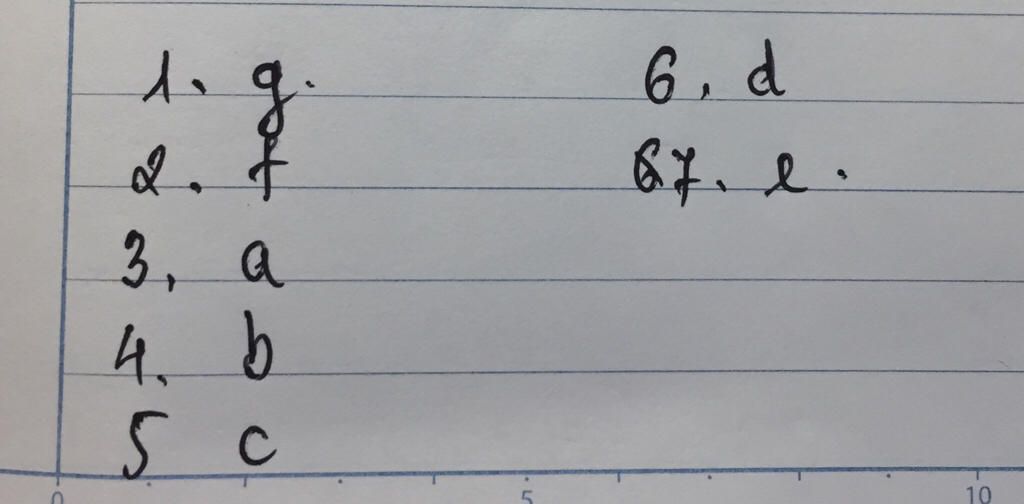 1. g.
2. f
3, a
4. b
5 c
6. d
67. e.
0 5 10